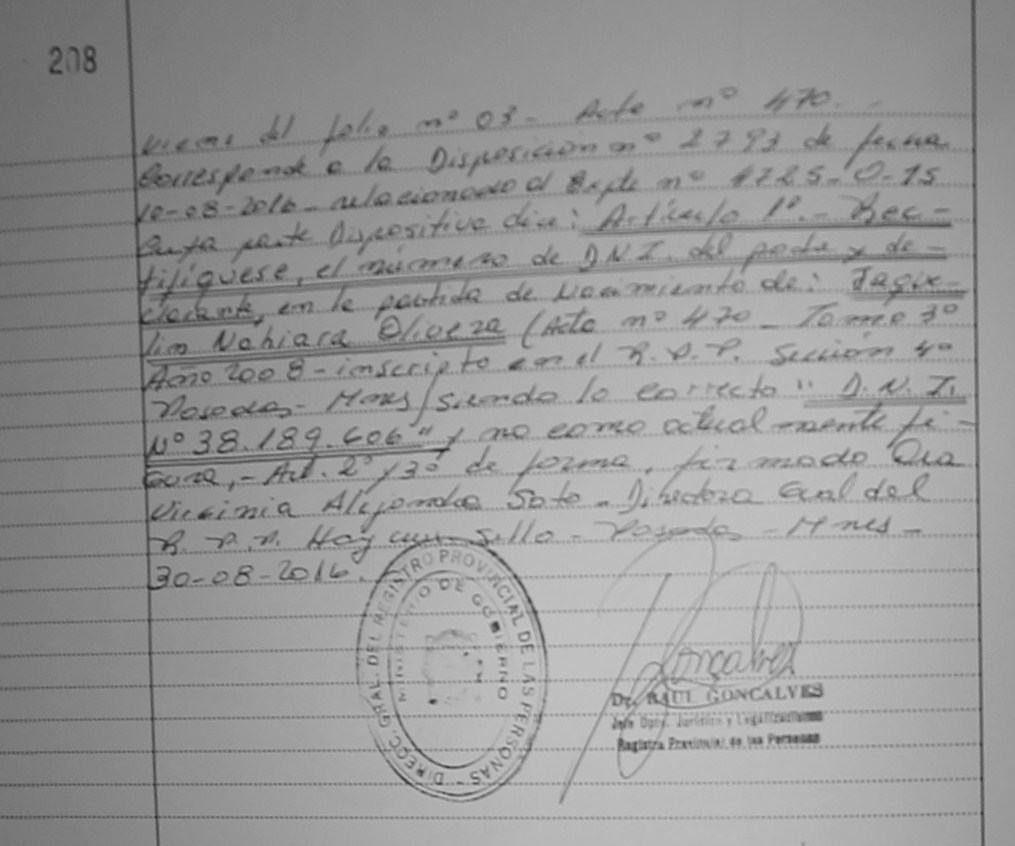 208
Viene del folio nº 03 - Acta nº 470.-
Corresponde a la Disposición nº 2793 de fecha
10-08-2016 - relacionado al Expte nº 4725-O-15
Cuya parte Dispositiva dice: Artículo 1º.- Rec-
tifíquese, el número de D.N.I. del padre y de-
clarante, en la partida de Nacimiento de: Jaque-
lin Nahiara Olivera (Acta nº 470 - Tomo 3º
Año 2008 - inscripto en el R.P.P. Sección 4º
Posadas - Mnes/siendo lo correcto "D.N.I.
Nº 38.189.606" y no como actualmente fi-
gura,- Art. 2º y 3º de forma, firmado Dra
Virginia Alejandra Soto - Directora Gral del
R.P.P. Hay un Sello - Posadas - Mnes -
30-08-2016.
DIRECC. GRAL. DEL REGISTRO PROVINCIAL DE LAS PERSONAS -
MINISTERIO DE GOBIERNO
Goncalvez
Dr. RAUL GONCALVES
Jefe Dpto. Jurídico y Legalizaciones
Registro Provincial de las Personas